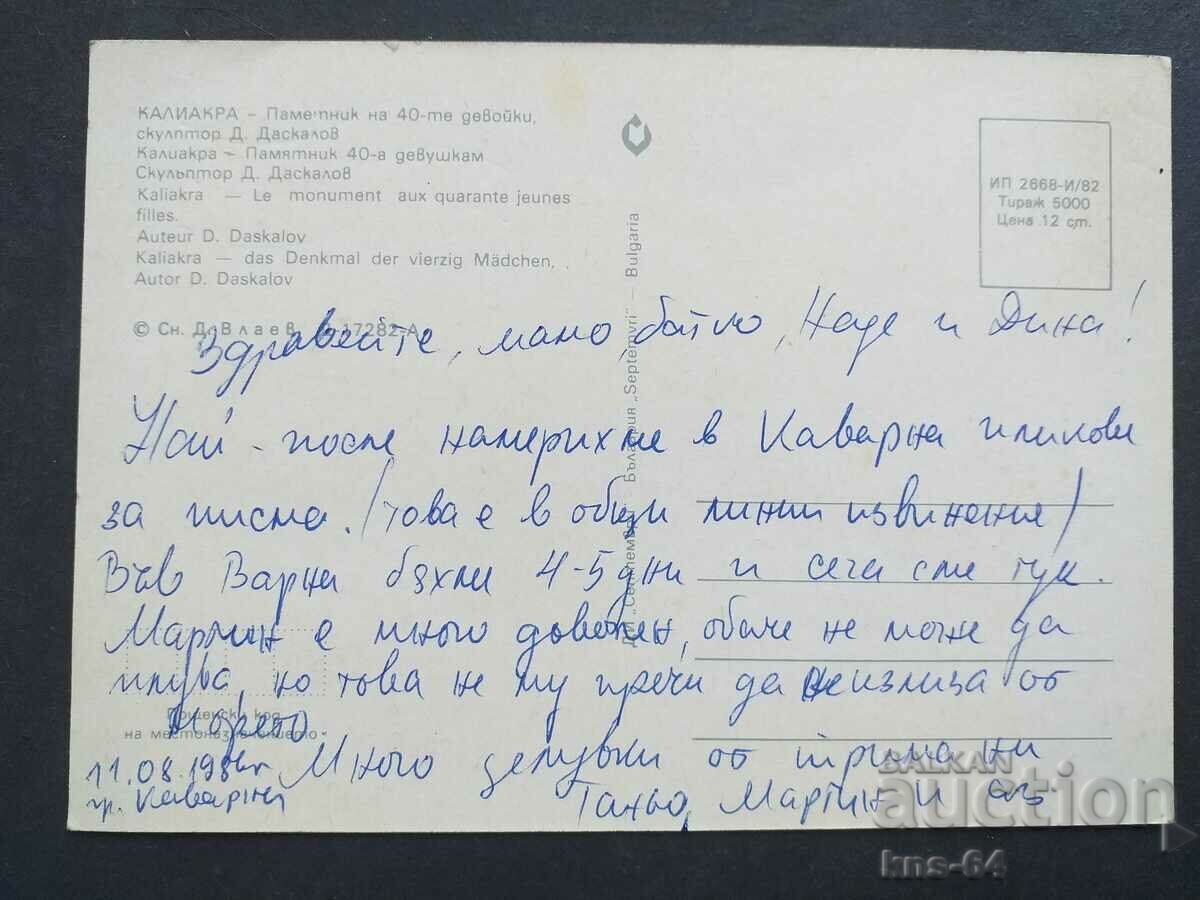 КАЛИАКРА – Паметник на 40-те девойки,
скулптор Д. Даскалов
Калиакра – Памятник 40-а девушкам
Скульптор Д. Даскалов
Kaliakra — Le monument aux quarante jeunes
filles.
Auteur D. Daskalov
Kaliakra — das Denkmal der vierzig Mädchen,
Autor D. Daskalov
© Сн. Д. Влаев 17282-А
ИП 2668-И/82
Тираж 5000
Цена 12 ст.
ДП „Септември“ – България „Septemvri“ – Bulgaria
Здравейте, мамо, батко, Наде и Дина!
Най-после намерихме в Каварна пликове
за писма. /това е в общи линии извинение/
Във Варна бяхме 4-5 дни и сега сме тук.
Мартин е много доволен, обаче не може да
плува, но това не му пречи да не излиза от
морето
Пощенски код
на местоназначението
Много целувки от трима ни
Таньо, Мартин и аз
11.08.198 г.
гр. Каварна
BALKAN
auction
kns-64